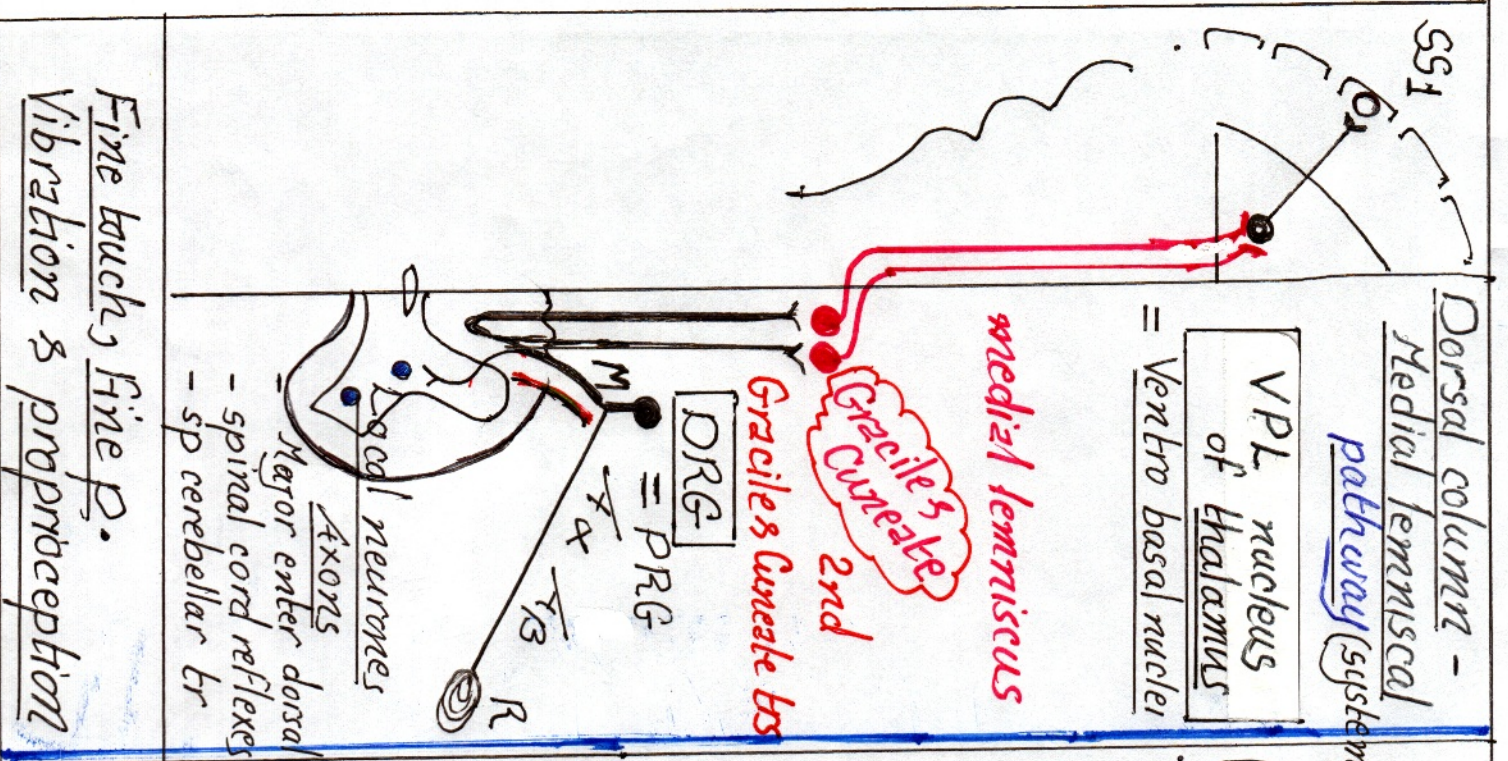 SS1
Dorsal column -
Medial lemniscal
pathway (system
VPL nucleus
of thalamus
= Ventro basal nuclei
medial lemniscus
Gracile &
Cuneate
2nd
Gracile & Cuneate trs
DRG
= PRG
M
R
Local neurones
Axons
- Major enter dorsal
- spinal cord reflexes
- sp cerebellar tr
Fine touch, Fine p.
Vibration & proprioception